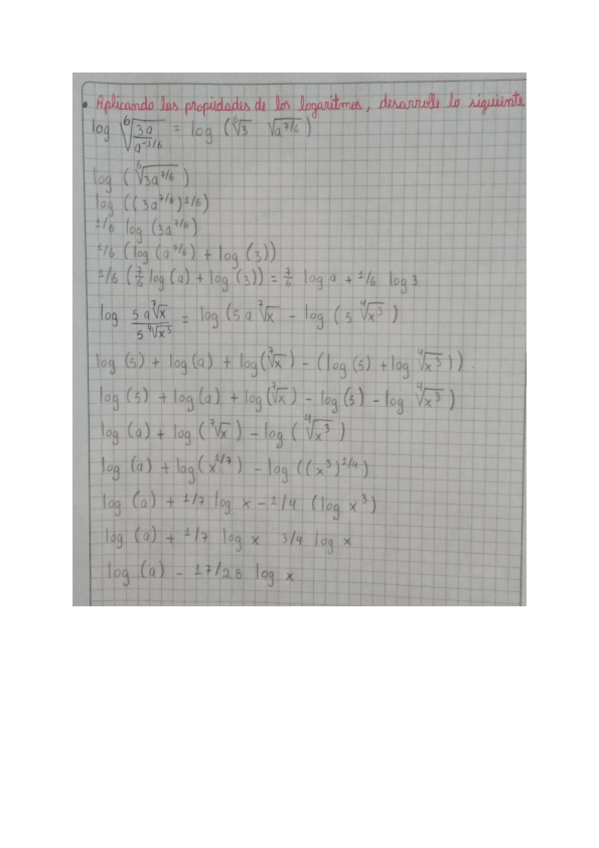 • Aplicando las propiedades de los logaritmos, desarrolle lo siguiente.
log ⁶√(3a/a^-1/6) = log (⁶√3 √a^7/6)
log (⁶√3a^7/6)
log ((3a^7/6)^1/6)
1/6 log (3a^7/6)
1/6 (log (a^7/6) + log (3))
1/6 (7/6 log (a) + log (3)) = 7/6 log a + 1/6 log 3
log 5a⁷√x / 5⁴√x³ = log (5a ⁷√x - log (5 ⁴√x³)
log (5) + log (a) + log (⁷√x) - (log (5) + log ⁴√x³))
log (5) + log (a) + log (⁷√x) - log (5) - log ⁴√x³)
log (a) + log (⁷√x) - log (⁴√x³)
log (a) + log (x^1/7) - log ((x³)^1/4)
log (a) + 1/7 log x - 1/4 (log x³)
log (a) + 1/7 log x 3/4 log x
log (a) - 17/28 log x